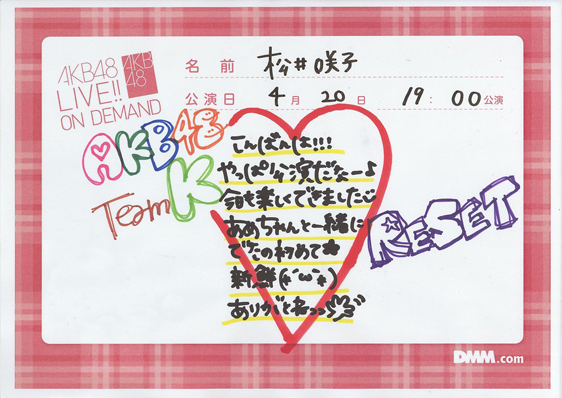 AKB48
LIVE!!
ON DEMAND
AKB
48
名前 松井咲子
公演日 4月20日 19:00公演
AKB48
TeamK
こんばんは!!!
やっぱ公演だなー♪
今日も楽しくできました
あめちゃんと一緒に
でたの初めて★
新鮮(*´ω`*)
ありがとねっっ
RESET
DMM.com